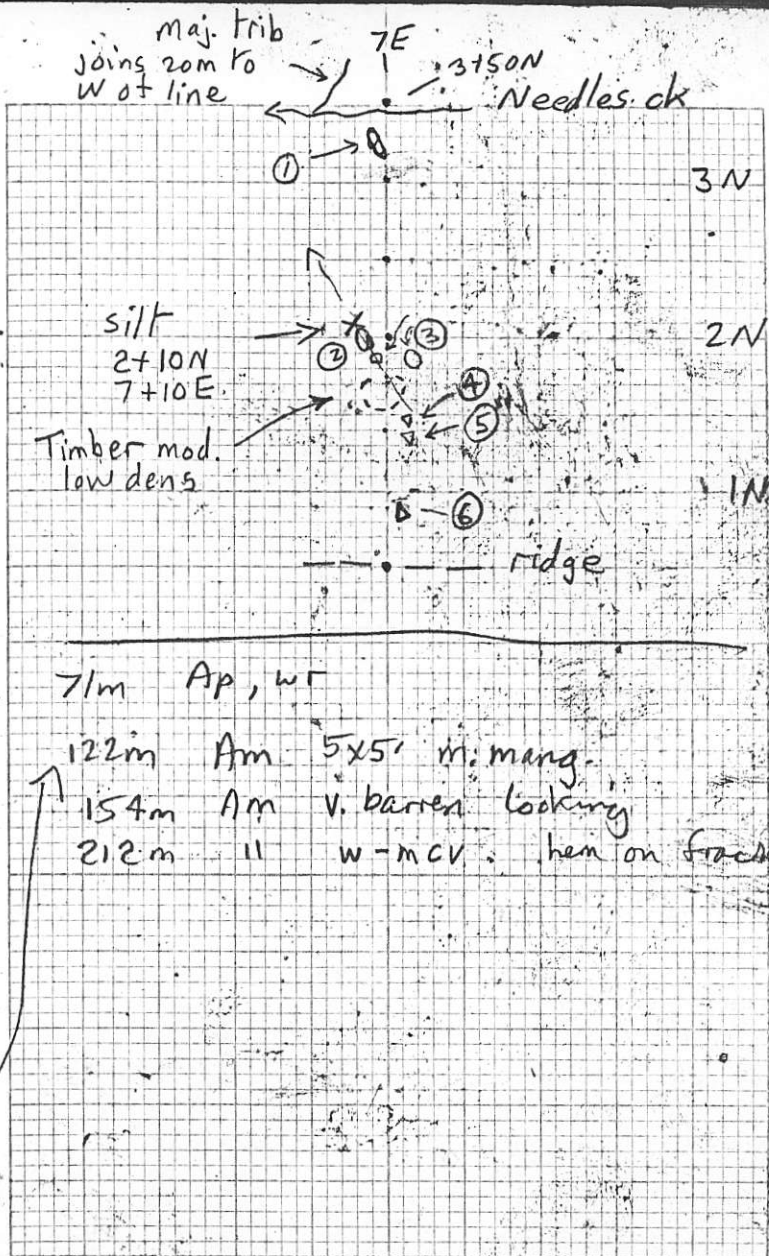 maj. trib
joins 20m to
W of line
7E
3+50N
Needles ck
①
3N
silt
2+10N
7+10E
②
③
2N
④
⑤
Timber mod.
low dens
1N
⑥
ridge
71m Ap, wr
122m Am 5x5' m. mang.
154m Am v. barren looking
212m " w-mcv. hem on fracs